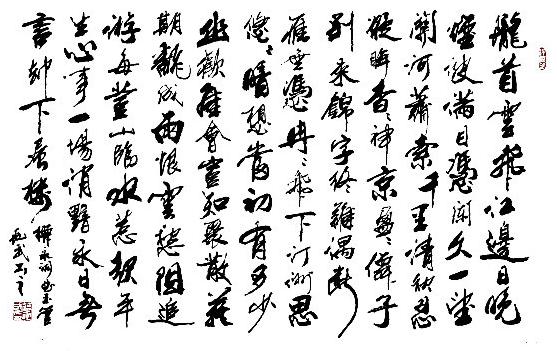 隴首雲飛江邊日晚
煙波滿目憑闌久一望
關河蕭索千里清秋忍
凝眸杳々神京盈々僊子
別來錦字終難偶斷
雁無憑冉々飛下汀洲思
悠々暗想當初有多少
幽歡佳會豈知聚散難
期翻成雨恨雲愁阻追
游每登山臨水惹起平
生心事一場消黯永日無
言卻下層樓 柳永詞曲玉管